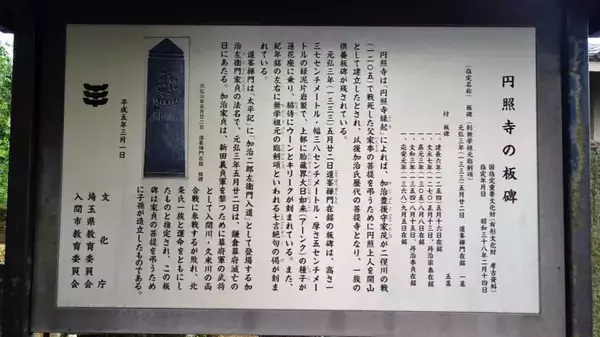 円照寺の板碑
国指定重要文化財(有形文化財 考古資料)
指定年月日 昭和三十八年二月十四日
(指定名称) 板碑 (刻無学祖元臨剣頌) 一基
元弘三年(一三三三)五月廿二日 道峯禅門在銘
付 板碑 五基
・建長六年(一二五四)二月十六日在銘
・文永七年(一二七〇)
・嘉元三年(一三〇五)八月
・文和三年(一三五四)
・応安元年(一三六八)
円照寺は『円照寺縁起』によれば、加治豊後守家茂が二俣川の戦
(一二〇五)で戦死した父家季の菩提を弔うために円照上人を開山
として建立したとされ、以後加治氏歴代の菩提寺となり、一族の
供養板碑が残されている。
元弘三年(一三三三)五月廿二日道峯禅門在銘の板碑は、高さ一
三七センチメートル・幅三八センチメートル・厚さ五センチメー
トルの緑泥片岩製で、上部に胎蔵界大日如来(アーンク)の種子が
蓮花座に乗り、脇侍にウーンとキリークが刻まれている。また、
紀年銘の左右に無学祖元の臨剣頌といわれる七言絶句の偈が刻ま
れている。
道峯禅門は、『太平記』に、「加治二郎左衛門入道」として登場する加
治左衛門家貞の法名で、元弘三年五月廿二日は、鎌倉幕府滅亡の
日にあたる。加治家貞は、新田義貞軍を撃つために幕府軍の武将
として入間川・久米川の両
合戦に参戦するが敗れ、北
条氏一族と運命をともにし
たものと推定され、この板
碑は家貞の菩提を弔うため
に子孫が造立したものである。
元弘三年五月廿二日 道峯禅門在銘 板碑
平成五年三月一日
文化庁
埼玉県教育委員会
入間市教育委員会